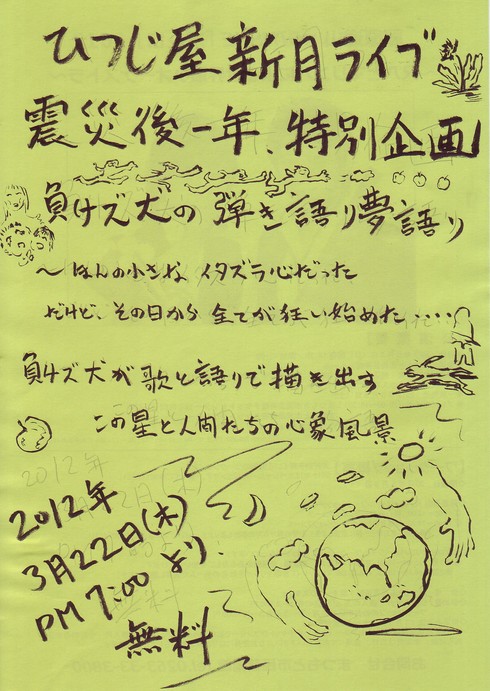 ひつじ屋 新月ライブ
震災後一年、特別企画
負けズ犬の 弾き語り夢語り
～ほんの小さな イタズラ心だった
だけど、その日から 全てが狂い始めた‥‥
負けズ犬が 歌と語りで描き出す
この星と人間たちの心象風景
2012年
3月22日(木)
PM 7:00 より.
無料